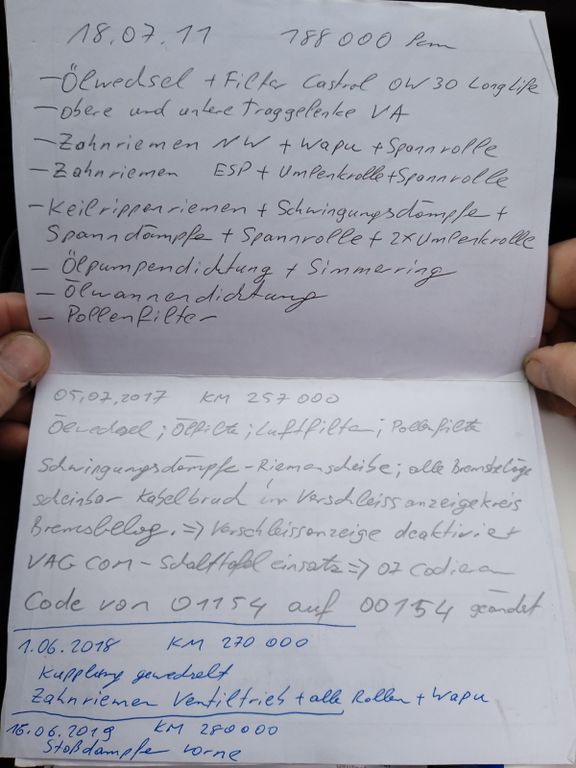 18.07.11 188 000 km
- Ölwechsel + Filter Castrol 0W30 LongLife
- obere und untere Traggelenke VA
- Zahnriemen NW + Wapu + Spannrolle
- Zahnriemen ESP + Umlenkrolle + Spannrolle
- Keilrippenriemen + Schwingungsdämpfer +
Spanndämpfer + Spannrolle + 2x Umlenkrolle
- Ölpumpendichtung + Simmerring
- Ölwannendichtung
- Pollenfilter
05.07.2017 KM 257 000
Ölwechsel; Ölfilter; Luftfilter; Pollenfilter
Schwingungsdämpfer - Riemenscheibe; alle Bremsbeläge
scheinbar Kabelbruch im Verschleissanzeigekreis
Bremsbelag. => Verschleissanzeige deaktiviert
VAG COM - Schalttafeleinsatz => 07 Codieren
Code von 01154 auf 00154 geändert
1.06.2018 KM 270 000
Kupplung gewechselt
Zahnriemen Ventiltrieb + alle Rollen + Wapu
16.06.2019 KM 280000
Stoßdämpfer vorne